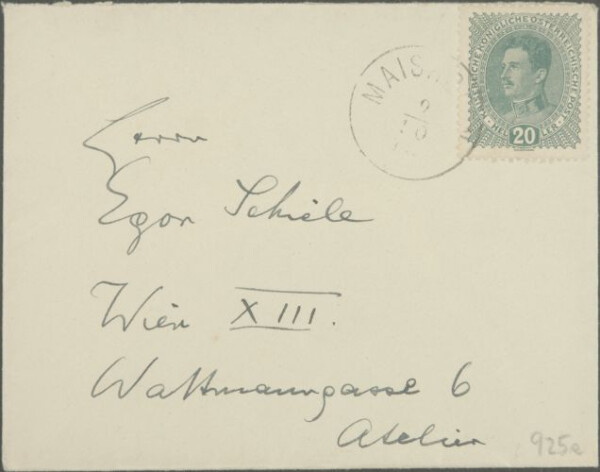 KAISERLICHE KÖNIGLICHE ÖSTERREICHISCHE POST
20
HELLER
Herrn
Egon Schiele
Wien XIII.
Wattmanngasse 6
Atelier
925a